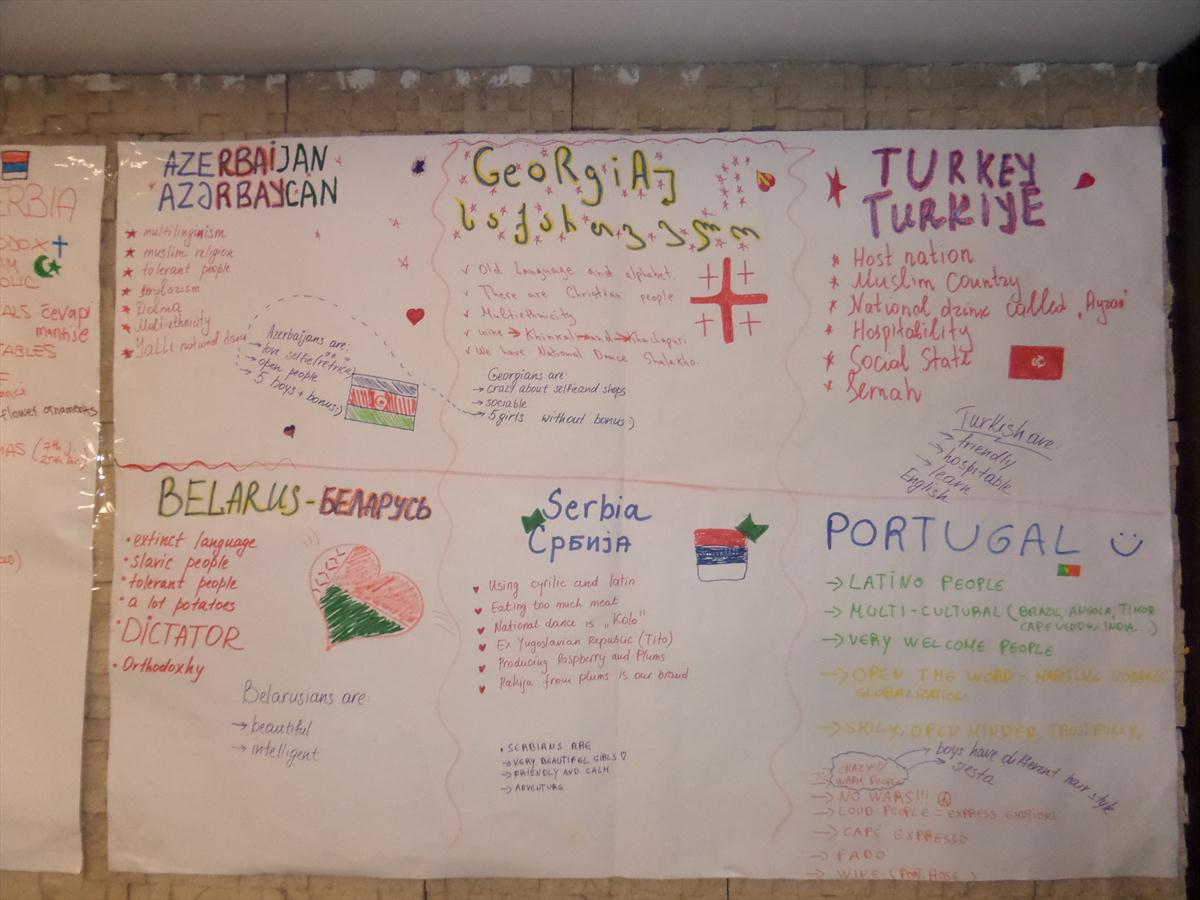 ERBIA
ODOX
AM
OLIC
ALS čevapi
TABLES
flower ornaments
AZERBAIJAN
AZƏRBAYCAN
multilinginism
muslim religion
tolerant people
Dolma
Multiethnicity
Yalli national dance
Azerbaijians are:
→ love selfie (retrica)
→ open people
→ 5 boys + bonus:)
GeoRgiA
Old Language and alphabet.
There are Christian people
Multiethnicity
wine → Khinkali and → Khachapuri
We have National Dance Shalakho.
Georgians are:
→ crazy about selfie and shops
→ sociable
→ 5 girls without bonus:)
TURKEY
TURKIYE
Host nation
Muslim Country
National drink called "Ayran"
Hospitability
Social State
Semah
Turkish are:
→ friendly
→ hospitable
→ learn
English
BELARUS - БЕЛАРУСЬ
• extinct language
• slavic people
• tolerant people
• a lot potatoes
• DICTATOR
• Orthodoxhy
Belarusians are:
→ beautiful
→ intelligent
Serbia
Србија
Using cyrilic and latin
Eating too much meat
National dance is „Kolo"
Ex Yugoslavian Republic (Tito)
Producing Raspberry and Plums
Rakija from plums is our brand
• SERBIANS ARE
→ VERY BEAUTIFUL GIRLS ♡
→ FRIENDLY AND CALM
→ ADVENTURE
PORTUGAL
→ LATINO PEOPLE
→ MULTI-CULTURAL (BRAZIL, ANGOLA, TIMOR
CAPE VERDE, INDIA...)
→ VERY WELCOME PEOPLE
→ OPEN THE WORD -
GLOBALIZATION
OPEN MINDED,
→ CRAZY!!!
→ WARM PEOPLE
→ boys have different hair style
→ siesta
→ NO WARS!!!
→ LOUD PEOPLE = EXPRESS EMOTIONS
→ CAFÉ EXPRESSO
→ FADO
→ WINE